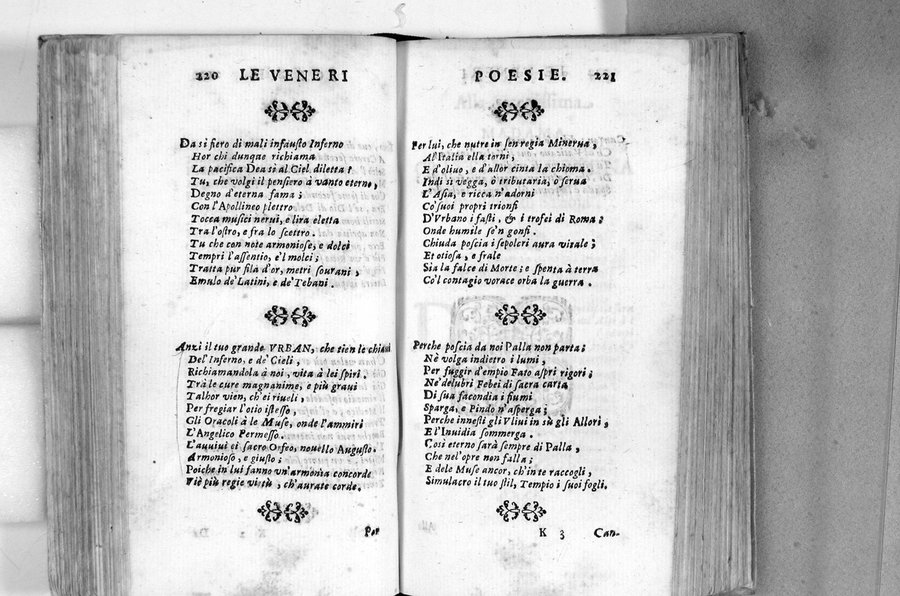 220 LE VENERI
Da sì fiero di mali infausto Inferno
Hor chi dunque richiama
La pacifica Dea sì al Ciel diletta?
Tu, che volgi il pensiero à vanto eterno,
Degno d'eterna fama;
Con l'Apollineo plettro
Tocca musici nerui, e lira eletta
Tra l'ostro, e fra lo scettro.
Tu che con note armoniose, e dolci
Tempri l'assentio, e'l molci;
Tratta pur fila d'or, metri sourani,
Emulo de'Latini, e de'Tebani.
Anzi il tuo grande VRBAN, che tien le chiaui
Del'Inferno, e de'Cieli,
Richiamandola à noi, vita à lei spiri.
Trà le cure magnanime, e più graui
Talhor vien, ch'ei riueli,
Per fregiar l'otio istesso,
Gli Oracoli à le Muse, onde l'ammiri
L'Angelico Permesso.
L'auuiui ei sacro Orfeo, nouello Augusto.
Armonioso, e giusto;
Poiche in lui fanno vn'armonia concorde
Viè più regie virtù, ch'aurate corde.
Per
POESIE. 221
Per lui, che nutre in sen regia Minerua,
Al'Italia ella torni,
E d'oliuo, e d'allor cinta la chioma.
Indi si vegga, ò tributaria, ò serua
L'Asia, e ricca n'adorni
Co'suoi propri trionfi
D'Vrbano i fasti, & i trofei di Roma;
Onde humile se'n gonfi.
Chiuda poscia i sepolcri aura vitale;
Et otiosa, e frale
Sia la falce di Morte; e spenta à terra
Co'l contagio vorace orba la guerra.
Perche poscia da noi Palla non parta;
Nè volga indietro i lumi,
Per fuggir d'empio Fato aspri rigori;
Ne'delubri Febei di sacra carta
Di sua facondia i fiumi
Sparga, e Pindo n'asperga;
Perche innesti gli Vliui in sù gli Allori,
E l'Inuidia sommerga.
Così eterno sarà sempre di Palla,
Che nel'opre non falla;
E dele Muse ancor, ch'in te raccogli,
Simulacro il tuo stil, Tempio i suoi fogli.
K 3 Can-